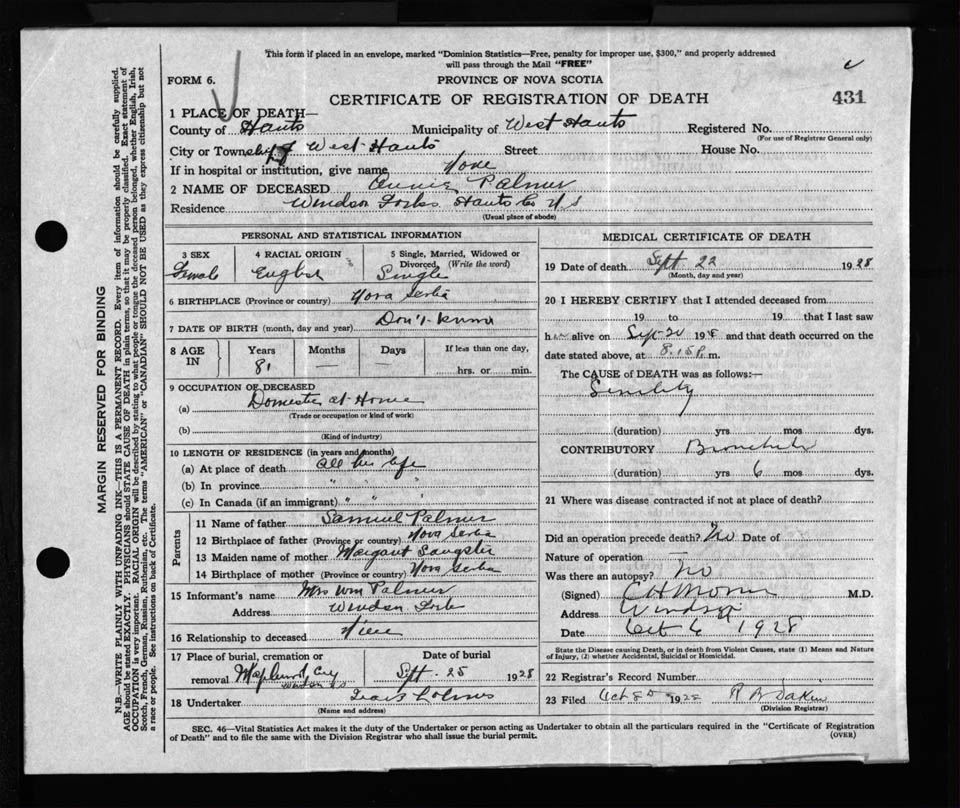 This form if placed in an envelope, marked "Dominion Statistics—Free, penalty for improper use, $300," and properly addressed
will pass through the Mail "FREE"
FORM 6.
PROVINCE OF NOVA SCOTIA
CERTIFICATE OF REGISTRATION OF DEATH
431
1 PLACE OF DEATH—
County of Hants Municipality of West Hants Registered No.
(For use of Registrar General only)
City or Township of West Hants Street House No.
If in hospital or institution, give name None
2 NAME OF DECEASED Annie Palmer
Residence Windsor Forks Hants Co N S
(Usual place of abode)
PERSONAL AND STATISTICAL INFORMATION
3 SEX Female
4 RACIAL ORIGIN English
5 Single, Married, Widowed or Divorced, (Write the word) Single
6 BIRTHPLACE (Province or country) Nova Scotia
7 DATE OF BIRTH (month, day and year) Don't know
8 AGE IN Years 81 Months — Days — If less than one day, hrs. or min.
9 OCCUPATION OF DECEASED
(a) Domestic at Home
(Trade or occupation or kind of work)
(b)
(Kind of industry)
10 LENGTH OF RESIDENCE (in years and months)
(a) At place of death all her life
(b) In province " " "
(c) In Canada (if an immigrant) " " "
Parents
11 Name of father Samuel Palmer
12 Birthplace of father (Province or country) Nova Scotia
13 Maiden name of mother Margaret Sangster
14 Birthplace of mother (Province or country) Nova Scotia
15 Informant's name Mrs Wm Palmer
Address Windsor Forks
16 Relationship to deceased Niece
17 Place of burial, cremation or removal Maplewood Cemy
Windsor N S
Date of burial Sept. 25 1928
18 Undertaker Holmes
(Name and address)
MEDICAL CERTIFICATE OF DEATH
19 Date of death Sept 22 1928
(Month, day and year)
20 I HEREBY CERTIFY that I attended deceased from
19 to 19 that I last saw
her alive on Sept 20 1928 and that death occurred on the
date stated above, at 8.15 P. m.
The CAUSE of DEATH was as follows:—
Senility
(duration) yrs mos dys.
CONTRIBUTORY Bronchitis
(duration) yrs 6 mos dys.
21 Where was disease contracted if not at place of death?
Did an operation precede death? No Date of
Nature of operation —
Was there an autopsy? no
(Signed) M.D.
Address Windsor
Date Oct 6 1928
State the Disease causing Death, or in death from Violent Causes, state (1) Means and Nature
of Injury, (2) whether Accidental, Suicidal or Homicidal.
22 Registrar's Record Number
23 Filed Oct 8 1928
(Division Registrar)
SEC. 46—Vital Statistics Act makes it the duty of the Undertaker or person acting as Undertaker to obtain all the particulars required in the "Certificate of Registration
of Death" and to file the same with the Division Registrar who shall issue the burial permit.
(OVER)
MARGIN RESERVED FOR BINDING
N.B.—WRITE PLAINLY WITH UNFADING INK—THIS IS A PERMANENT RECORD. Every item of information should be carefully supplied.
AGE should be stated EXACTLY. PHYSICIANS should STATE CAUSE OF DEATH in plain terms, so that it may be properly classified. Exact statement of
OCCUPATION is very important. RACIAL ORIGIN will be described by stating to what people or tongue the deceased person belonged, whether English, Irish,
Scotch, French, German, Russian, Ruthenian, etc. The terms "AMERICAN" or "CANADIAN" SHOULD NOT BE USED as they express citizenship but not
a race or people. See instructions on back of Certificate.